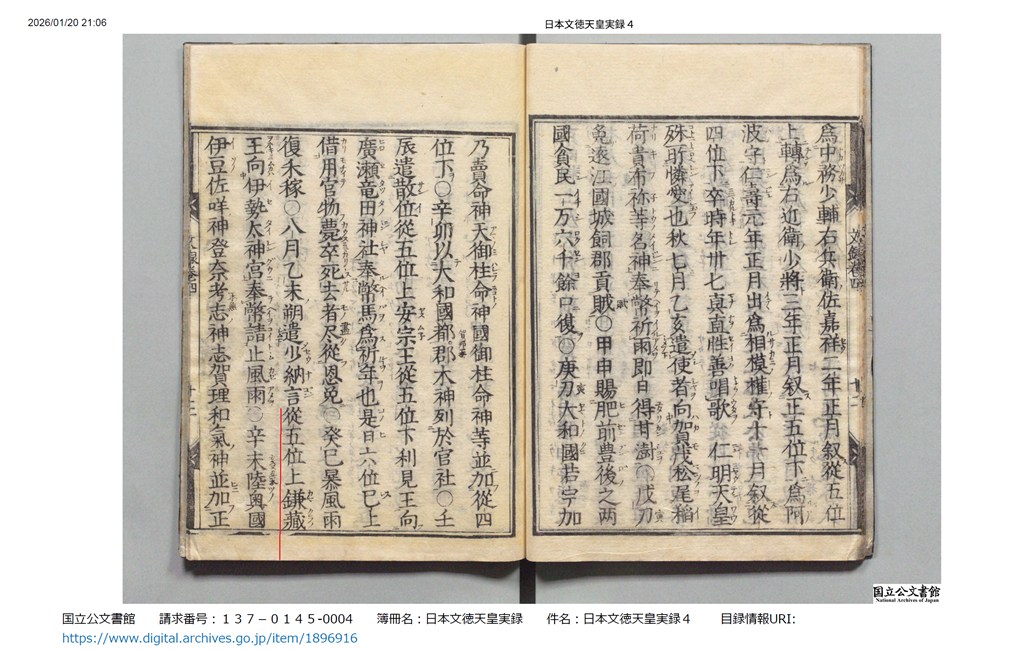 2026/01/20 21:06
日本文徳天皇実録４
為中務少輔右兵衛佐嘉祥二年正月叙從五位
上轉為右近衛少將三年正月叙正五位下為阿
波守仁壽元年正月出為相模權守十一月叙從
四位下卒時年卅七真直性善唱歌 仁明天皇
殊所憐愛也秋七月乙亥遣使者向賀茂松尾稲
荷貴布祢等名神奉幣祈雨即日得甘澍〇戊刀
免遠江國城飼郡貢賊〇甲申賜肥前豊後之两
國貧民一万六千餘口復〇庚刀大和國若宇加
乃賣命神天御柱命神國御柱命神等並加從四
位下〇辛卯以大和國都郡木神列於官社〇壬
辰遣散位從五位上安宗王從五位下利見王向
廣瀬竜田神社奉幣馬為祈年也是日六位已上
借用官物薨卒死去者尽從恩免〇癸巳暴風雨
復禾稼〇八月乙未朔遣少納言從五位上鎌藏
王向伊勢太神宮奉幣請止風雨〇辛未陸奥國
伊豆佐咩神登奈孝志神志賀理和氣神並加正
十三
国立公文書館
National Archives of Japan
国立公文書館 請求番号：１３７－０１４５-0004 簿冊名：日本文徳天皇実録 件名：日本文徳天皇実録４ 目録情報URI:
https://www.digital.archives.go.jp/item/1896916